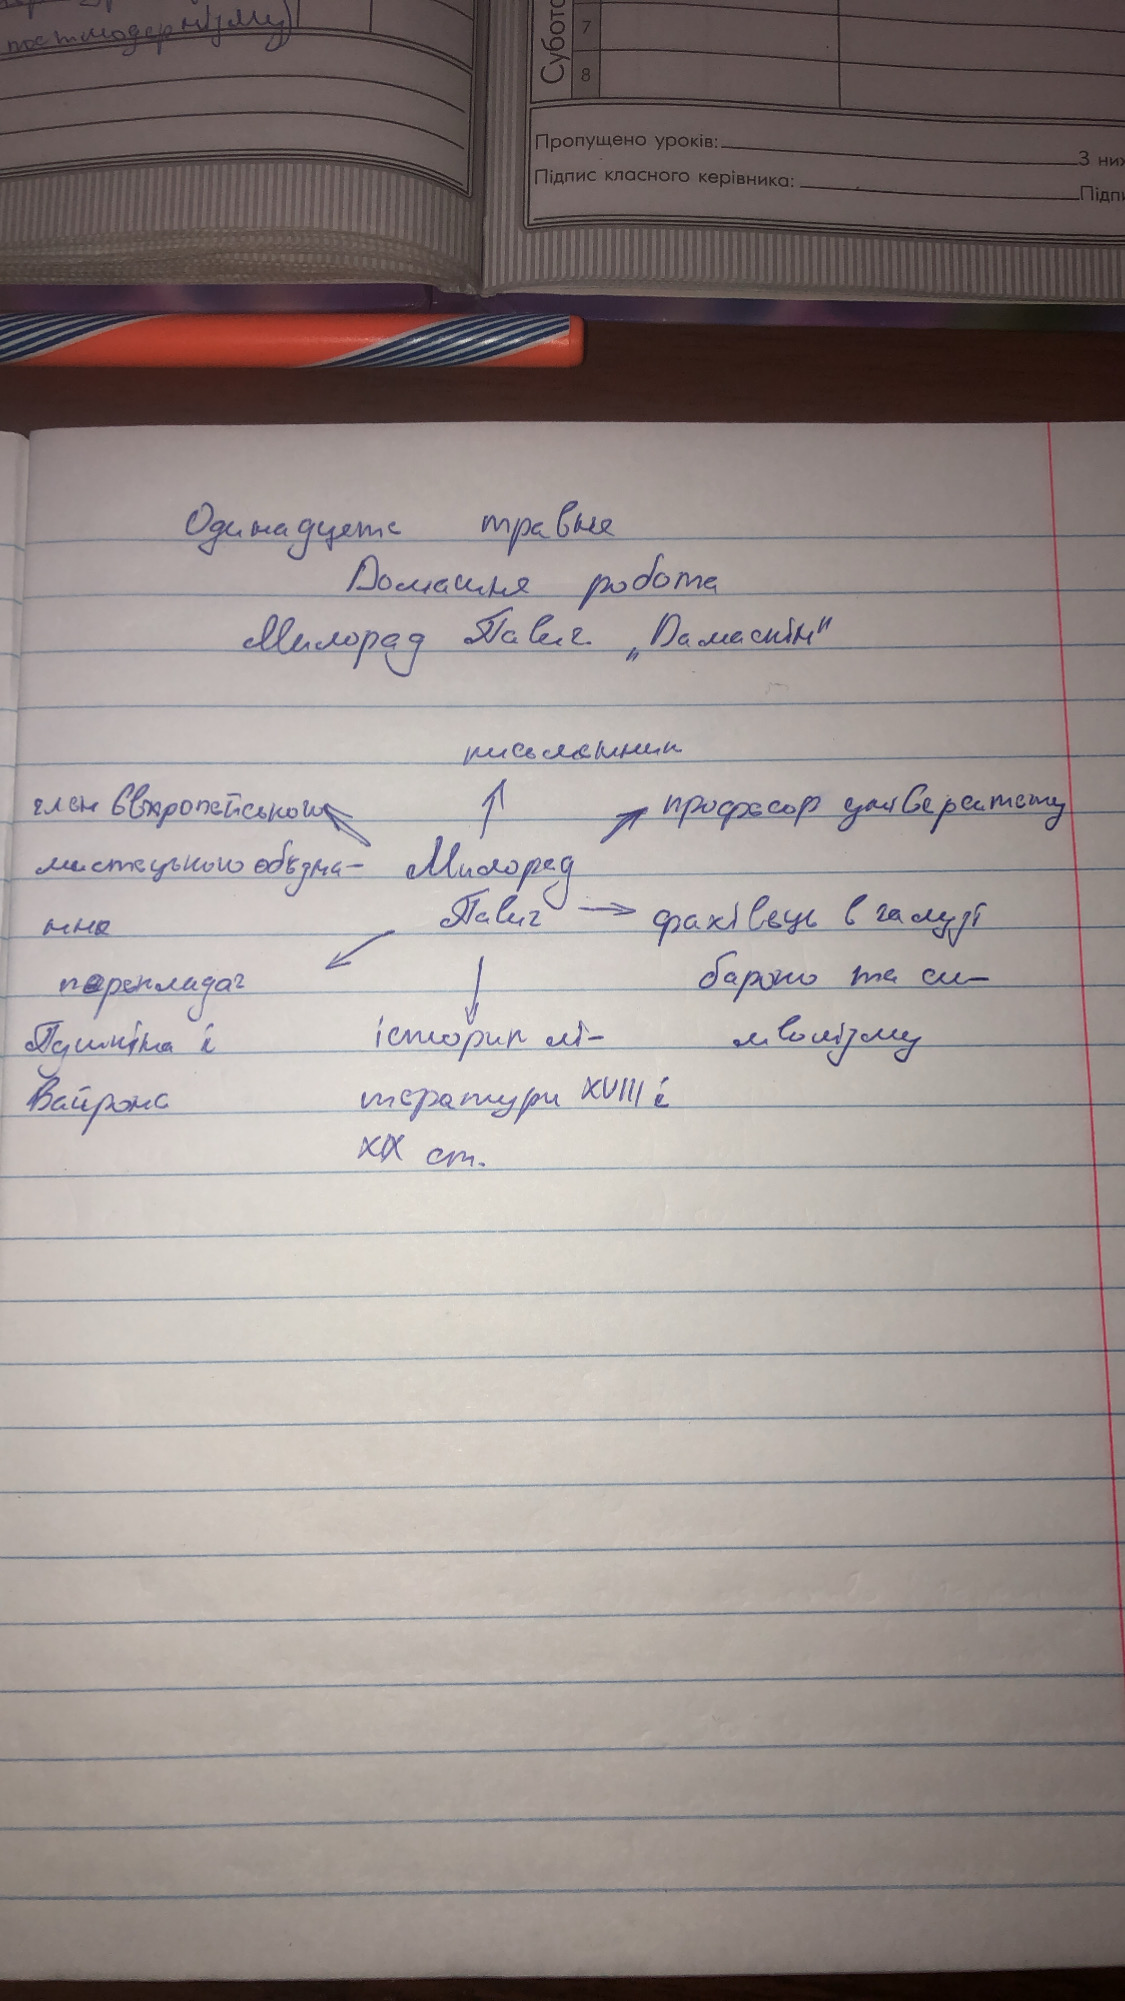 постмодернізму)
Субото
7
8
Пропущено уроків:
З них
Підпис класного керівника:
Підпи
Одинадцяте травня
Домашня робота
Милорад Павич. „Дамаскін"
письменник
член Європейського
мистецького обʼєдна-
ння
професор університету
Милорад
Павич
фахівець в галузі
бароко та си-
мволізму
перекладач
Пушкіна і
Байрона
історик лі-
тератури XVIII і
XIX ст.